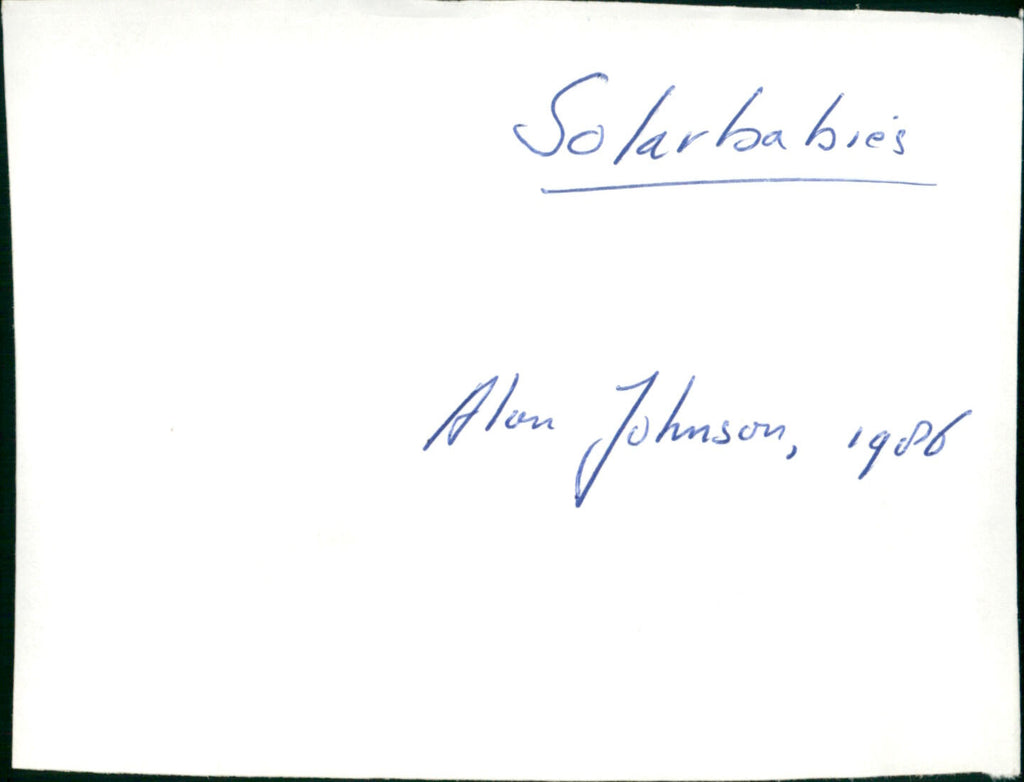 Solarbabies
Alan Johnson, 1986